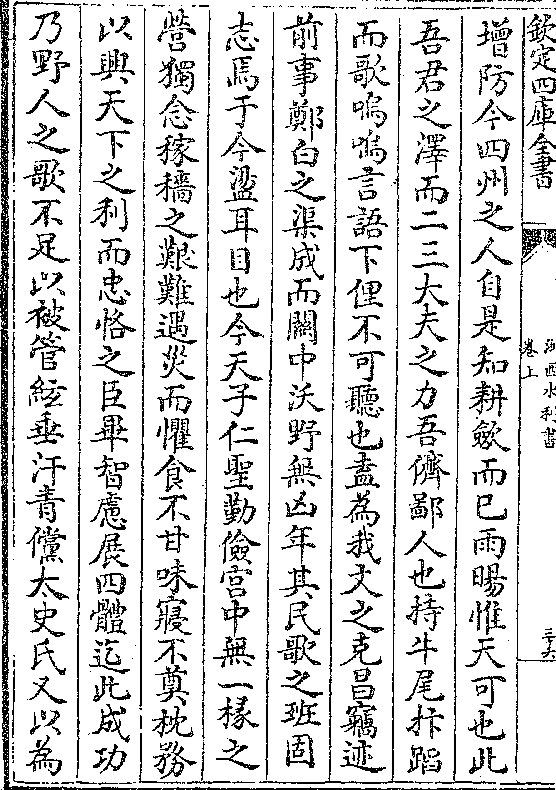 欽定四庫全書
浙西水利書
卷上
三十六
增防今四州之人自是知耕斂而已雨暘惟天可也此
吾君之澤而二三大夫之力吾儕鄙人也持牛尾抃蹈
而歌嗚嗚言語下俚不可聽也盍為我文之克昌竊迹
前事鄭白之渠成而關中沃野無凶年其民歌之班固
志焉于今盪耳目也今天子仁聖勤儉宫中無一椽之
營獨念稼穡之艱難遇災而懼食不甘味寢不奠枕務
以興天下之利而忠恪之臣畢智慮展四體迄此成功
乃野人之歌不足以被管絃垂汗青儻太史氏又以為